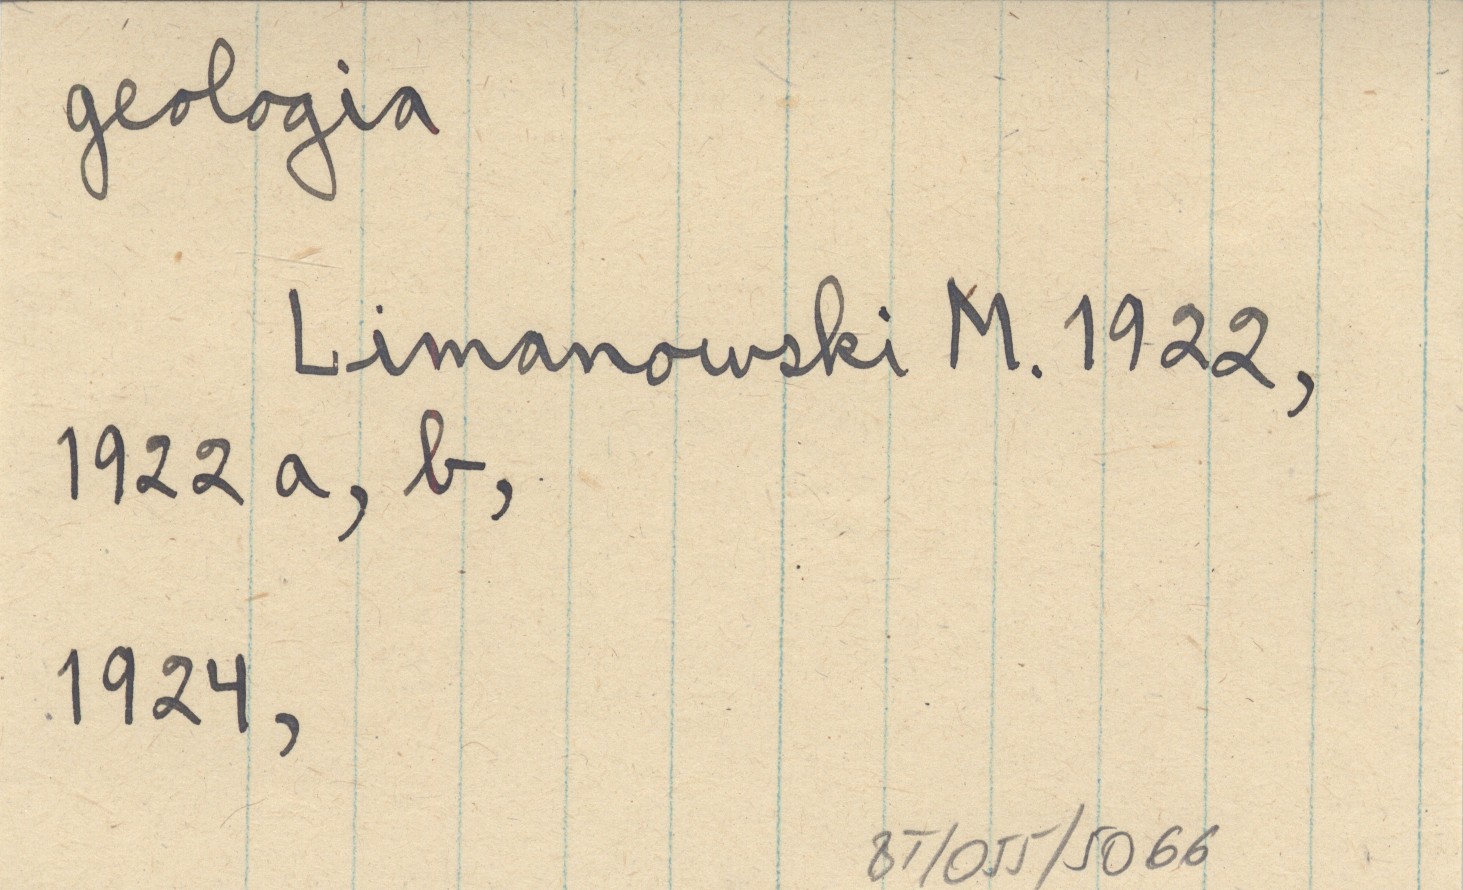 geologia
Limanowski M. 1922,
1922 a, b,
1924,
BT/055/5066